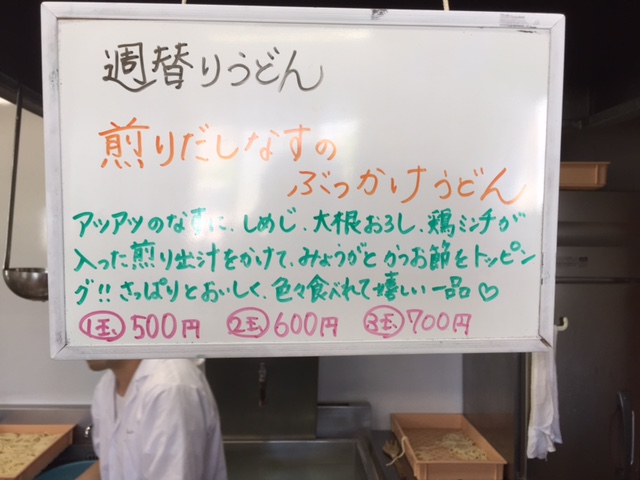 週替りうどん
煎りだしなすの
ぶっかけうどん
アツアツのな すに、しめじ、大根おろし、鶏ミンチが
入った煎り出汁をかけて、みょうがとかつお節をトッピン
グ!! さっぱりとおいしく、色々食べれて嬉しい一品♡
1玉 500円 2玉 600円 3玉 700円